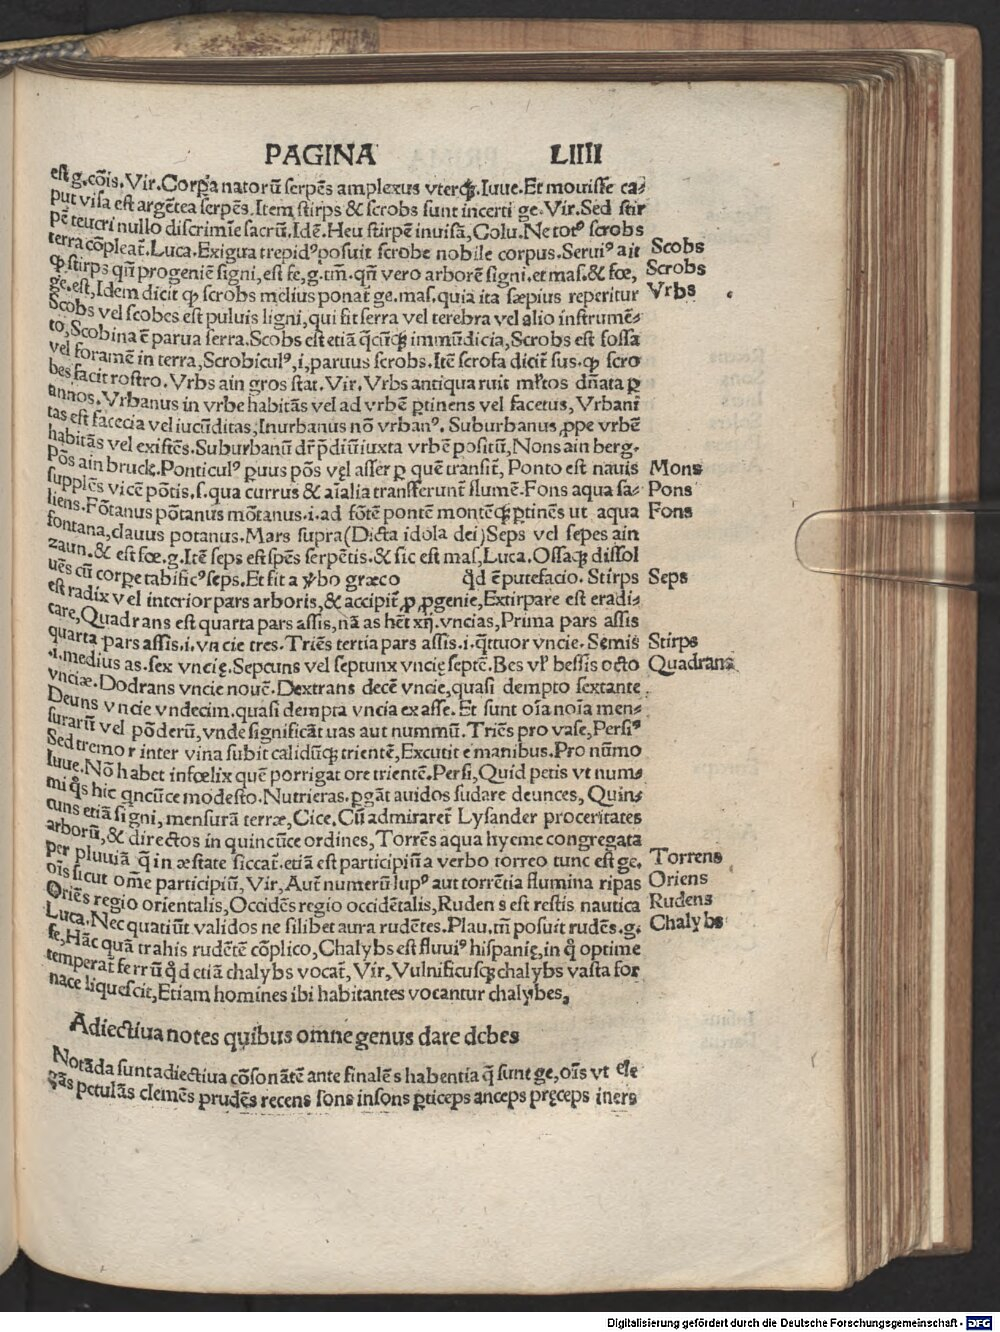 PAGINA LIIII
est g. cōis. Vir. Corpa natorū serpēs amplexus vterq. Iuue. Et mouisse ca⸗
put visa est argētea serpēs. Item stirps & scrobs sunt incerti ge. Vir. Sed stir
pē teucri nullo discrimīe sacrū. Idē. Heu stirpē inuisā, Colu. Ne totꝰ scrobs
terra cōpleat̄. Luca. Exigua trepidꝰ posuit scrobe nobile corpus. Seruiꝰ ait
ꝙ stirps qn̄ progeniē signi, est fe, g. tm̄. qn̄ vero arborē signi. et mas. & fœ,
Scobs
Scrobs
ge. est, Idem dicit ꝙ scrobs melius ponat̄ ge. mas. quia ita sæpius reperitur
Vrbs
Scobs vel scobes est puluis ligni, qui fit serra vel terebra vel alio instrumē⸗
to, Scobina ē parua serra. Scobs est etiā qcūq immūdicia, Scrobs est fossa
vel foramē in terra, Scrobiculꝰ, i, paruus scrobs. Itē scrofa dicit̄ sus. ꝙ scro
bes facit rostro. Vrbs ain gros stat. Vir. Vrbs antiqua ruit ml̄tos dn̄ata ꝑ
annos. Vrbanus in vrbe habitās vel ad vrbē ꝑtinens vel facetus, Vrbani
tas est facecia vel iucūditas, Inurbanus nō vrbanꝰ. Suburbanus ꝓpe vrbē
habitās vel existēs. Suburbanū dr̄ pdiū iuxta vrbē positū, Nons ain berg.
Pōs ain bruck. Ponticulꝰ puus pōs vęl asser ꝑ quē transit̄, Ponto est nauis
Mons
supplēs vicē pōtis. s. qua currus & aīalia transferunt̄ flumē. Fons aqua sa⸗
Pons
liens. Fōtanus pōtanus mōtanus. i. ad fōtē pontē montēq ꝑtinēs ut aqua
Fons
fontana, clauus potanus. Mars supra (Dicta idola dei) Seps vel sepes ain
zaun. & est fœ. g. Itē seps est spēs serpētis. & sic est mas, Luca. Ossaq dissol
uēs cū corpe tabificꝰ seps. Et fit a vbo græco qd ē putefacio. Stirps
Seps
est radix vel interior pars arboris, & accipit̄ ꝓ ꝓgenie, Extirpare est eradi⸗
care, Quadrans est quarta pars assis, nā as het xij. vncias, Prima pars assis
quarta pars assis. i. vncie tres. Triēs tertia pars assis. i. qttuor vncie. Semis
Stirps
.i. medius as. sex vncię. Sepcuns vel septunx vncię septē. Bes vl̄ bessis octo
Quadrans
vnciæ. Dodrans vncie nouē. Dextrans decē vncie, quasi dempto sextante.
Deuns vncie vndecim. quasi dempta vncia ex asse. Et sunt oīa noīa men⸗
surarū vel pōderū, vnde significāt uas aut nummū. Triēs pro vase, Persiꝰ
Sed tremor inter vina subit calidūq trientē, Excutit e manibus. Pro nūmo
Iuue. Nō habet infœlix quē porrigat ore trientē. Persi, Quid petis vt num⸗
mi qs hic qncūce modesto. Nutrieras. pgāt auidos sudare deunces, Quin⸗
cuns etiā signi, mensurā terræ, Cice. Cū admiraret̄ Lysander proceritates
arborū, & directos in quincūce ordines, Torrēs aqua hyeme congregata
per pluuiā q in æstate siccat̄. etiā est participiū a verbo torreo tunc est ge.
Torrens
oīs sicut om̄e participiū, Vir, Aut̄ numerū lupꝰ aut torrētia flumina ripas
Oriens
Oriēs regio orientalis, Occidēs regio occidētalis, Rudens est restis nautica
Rudens
Luca. Nec quatiūt validos ne silibet aura rudētes. Plau. tn̄ posuit rudēs. g.
Chalybs
fe, Hāc quā trahis rudētē cōplico, Chalybs est fluuiꝰ hispanię, in q optime
temperat̄ ferrū qd etiā chalybs vocat̄, Vir, Vulnificusq chalybs vasta for
nace liquescit, Etiam homines ibi habitantes vocantur chalybes,
Adiectiua notes quibus omne genus dare debes
Notāda sunt adiectiua cōsonātē ante finalē s habentia q sunt ge, oīs vt ele
gās petulās clemēs prudēs recens sons insons ꝑticeps anceps pręceps iners
Digitalisierung gefördert durch die Deutsche Forschungsgemeinschaft - DFG